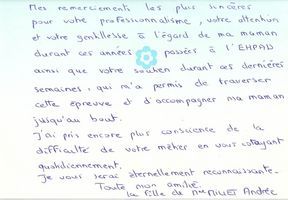 Mes remerciements les plus sincères
pour votre professionnalisme, votre attention
et votre gentillesse à l'égard de ma maman
durant ces années passées à l'EHPAD
ainsi que votre soutien durant ces dernières
semaines, qui m'a permis de traverser
cette épreuve et d'accompagner ma maman
jusqu'au bout.
J'ai pris encore plus conscience de la
difficulté de votre métier en vous cotoyant
quotidiennement.
Je vous serai éternellement reconnaissante.
Toute mon amitié.
La fille de Mme MILLET Andrée